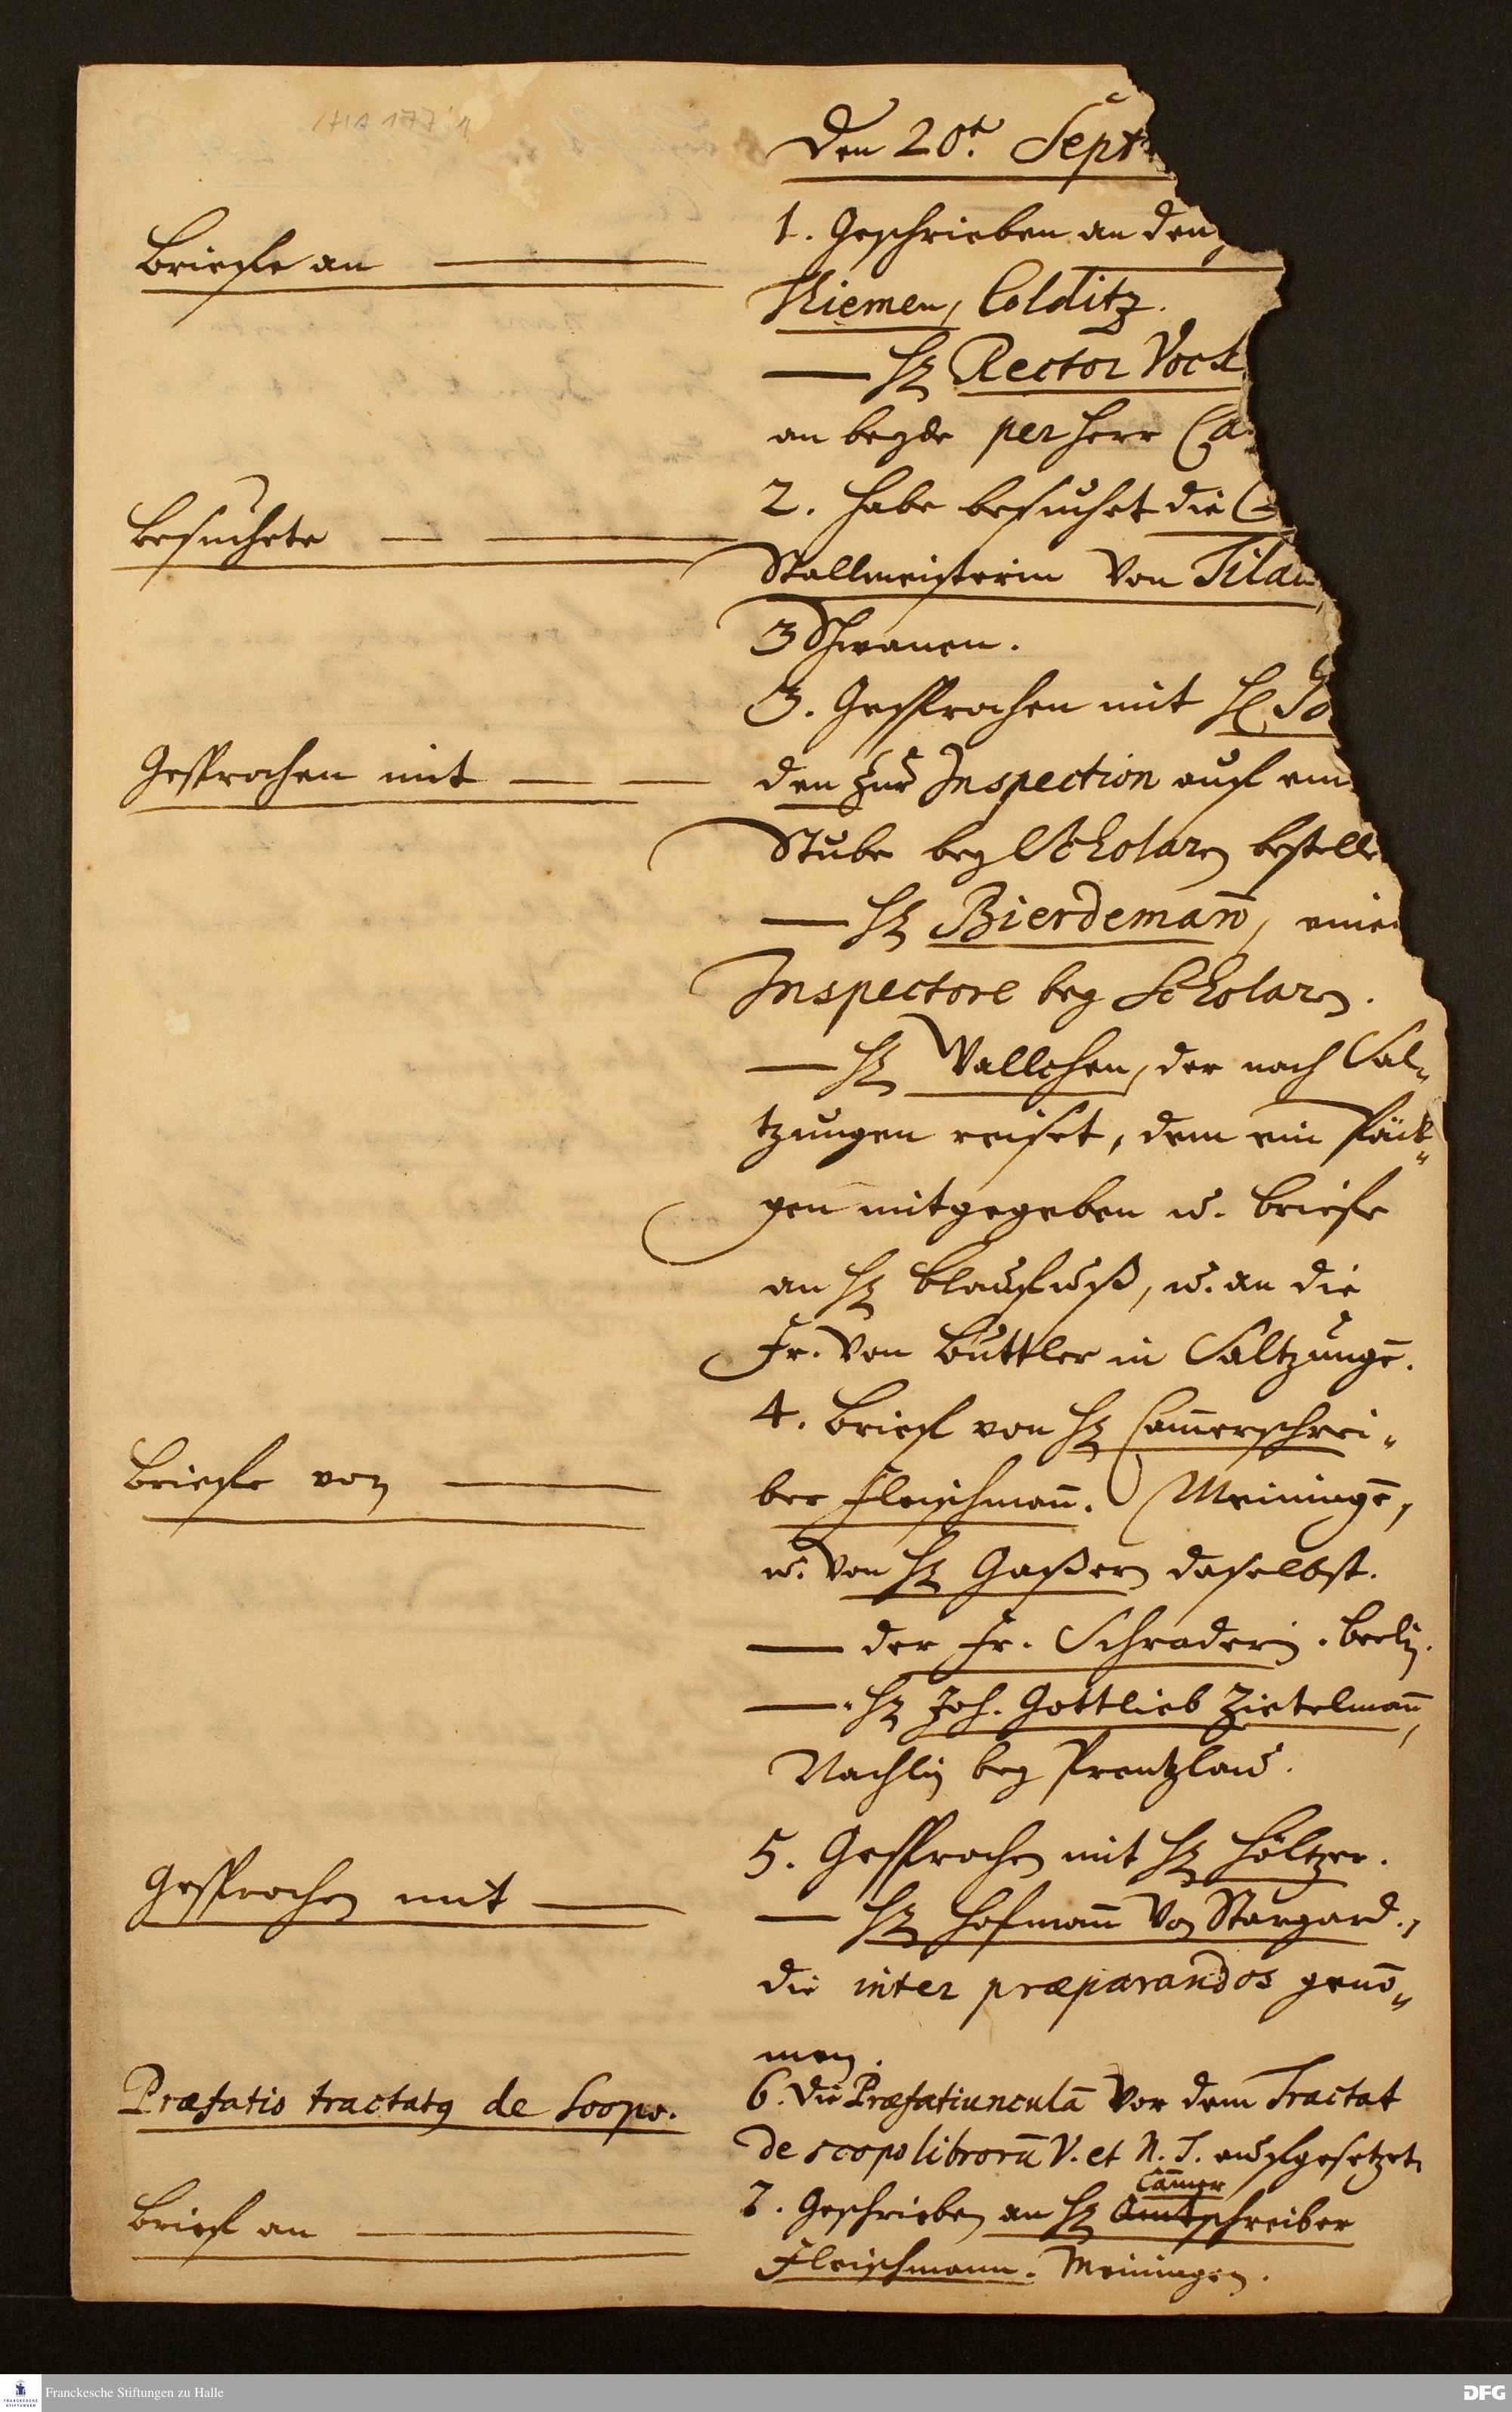 Den 20t. Sept
Briefe an
1. Geschrieben an den
Riemen, Colditz.
— H. Rector Vock
an beyde per Herr Ca
Besuchete
2. Habe besuchet die
Stallmeisterin von Tilau
3 Schwanen.
Gesprochen mit
3. Gesprochen mit H.
den zur Inspection auf ein
Stube bey Scholaren bestell
— H. Bierdeman̄, eine
Inspectore bey Scholaren.
— H. Vallchen, der nach Sal„
tzungen reiset, dem ein Päck„
gen mitgegeben u. Briefe
an H. Blaufuß, u. an die
Fr. von Buttler in Saltzungē.
Briefe von
4. Brief von H. Cam̄erschrei„
ber Fleischman̄. Meiningē,
u. von H. Gaßern daselbst.
— der Fr. Schraderin. Berlin.
— H. Joh. Gottlieb Zietelman̄,
Nachlin bey Prentzlau.
Gesprochen mit
5. Gesprochen mit H. Höltzer.
— H. Hofman̄ von Stargard.,
die inter præparandos genō„
men.
Præfatio tractatus de Scopo.
6. Die Præfatiunculā vor dem Tractat
de scopo librorū V. et N. T. aufgesetzet.
Brief an
7. Geschrieben an H. Amtschreiber
Cam̄er
Fleischmann. Meiningen.
Franckesche Stiftungen zu Halle
DFG